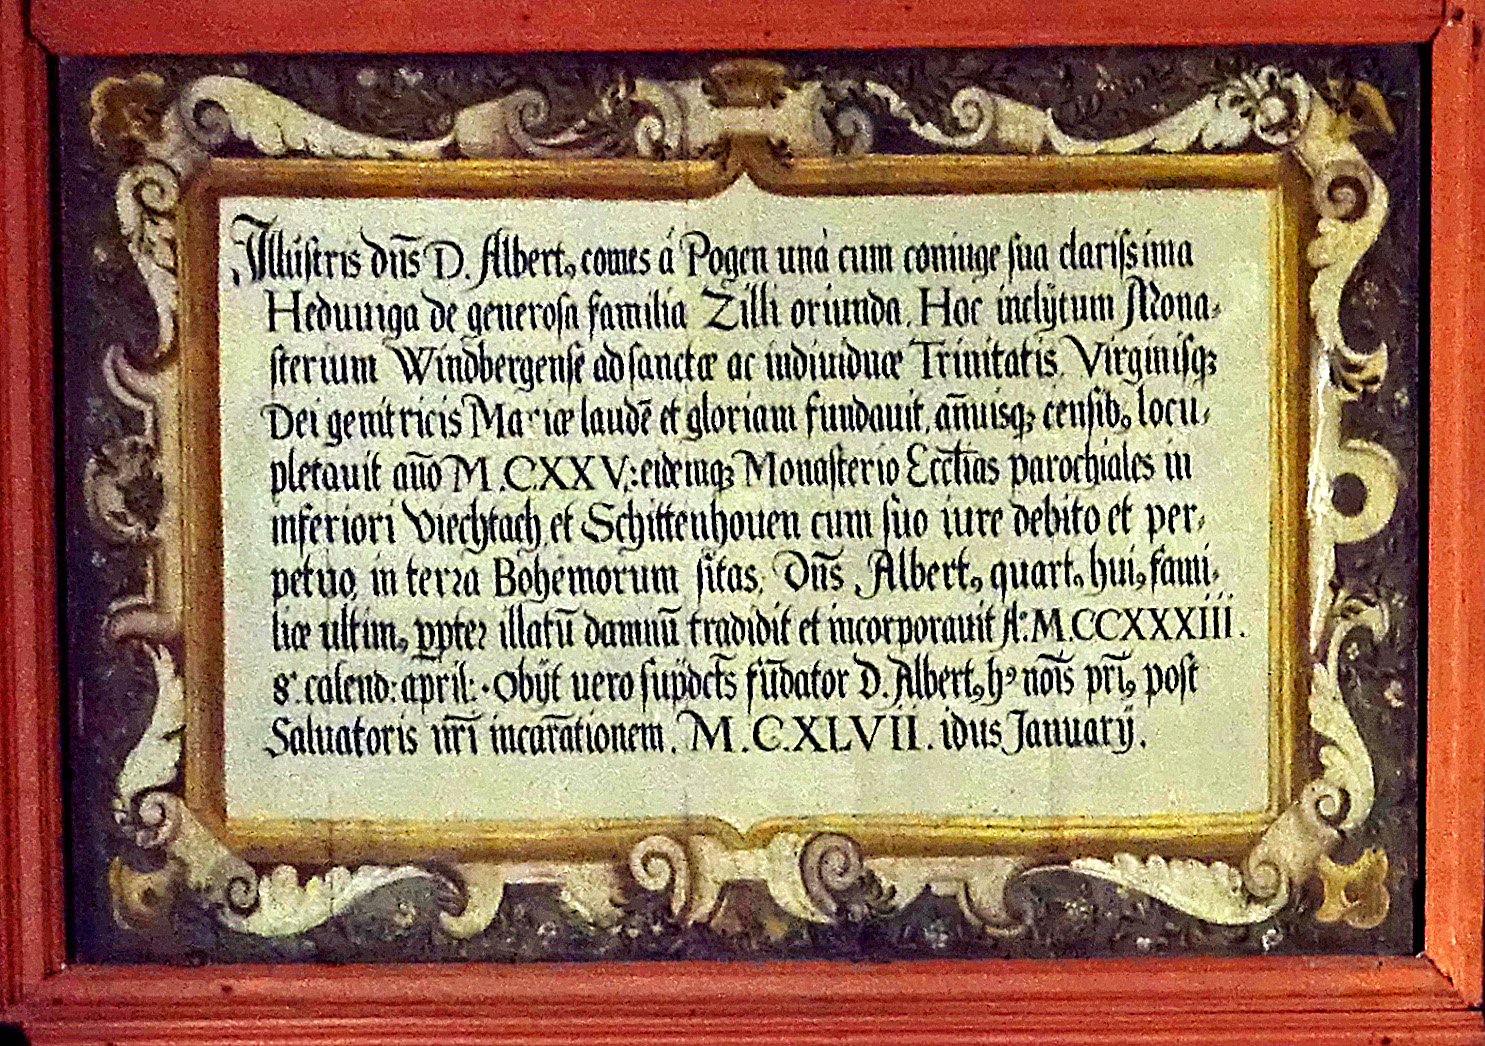 Illustris dn̄s D. Albertꝰ comes á Pogen unà cum coniuge sua clarissima
Heduuiga de generosa familia Zilli oriunda. Hoc inclÿtum Mona-
sterium Windbergense ad sanctæ ac indiuiduæ Trinitatis. Virginisq;
Dei genitricis Mariæ laudē et gloriam fundauit, añuisq; censibꝰ locu-
pletauit año M.CXXV.: eidemq; Monasterio Eccl̄ias parochiales in
inferiori Viechtach et Schittenhouen cum suo iure debito et per-
petuo, in terra Bohemorum sitas, Dn̄s Albertꝰ quartꝰ huiꝰ fami-
liæ ultimꝰ ꝓpter illatū damnū tradidit et incorporauit A:M.CCXXXIII.
8. calend: april: Obijt uero sup̄dct̄s fūdator D. Albertꝰ hꝰ nōis priꝯ post
Saluatoris nr̄i incarātionem. M.C.XLVII. idus Januarij.